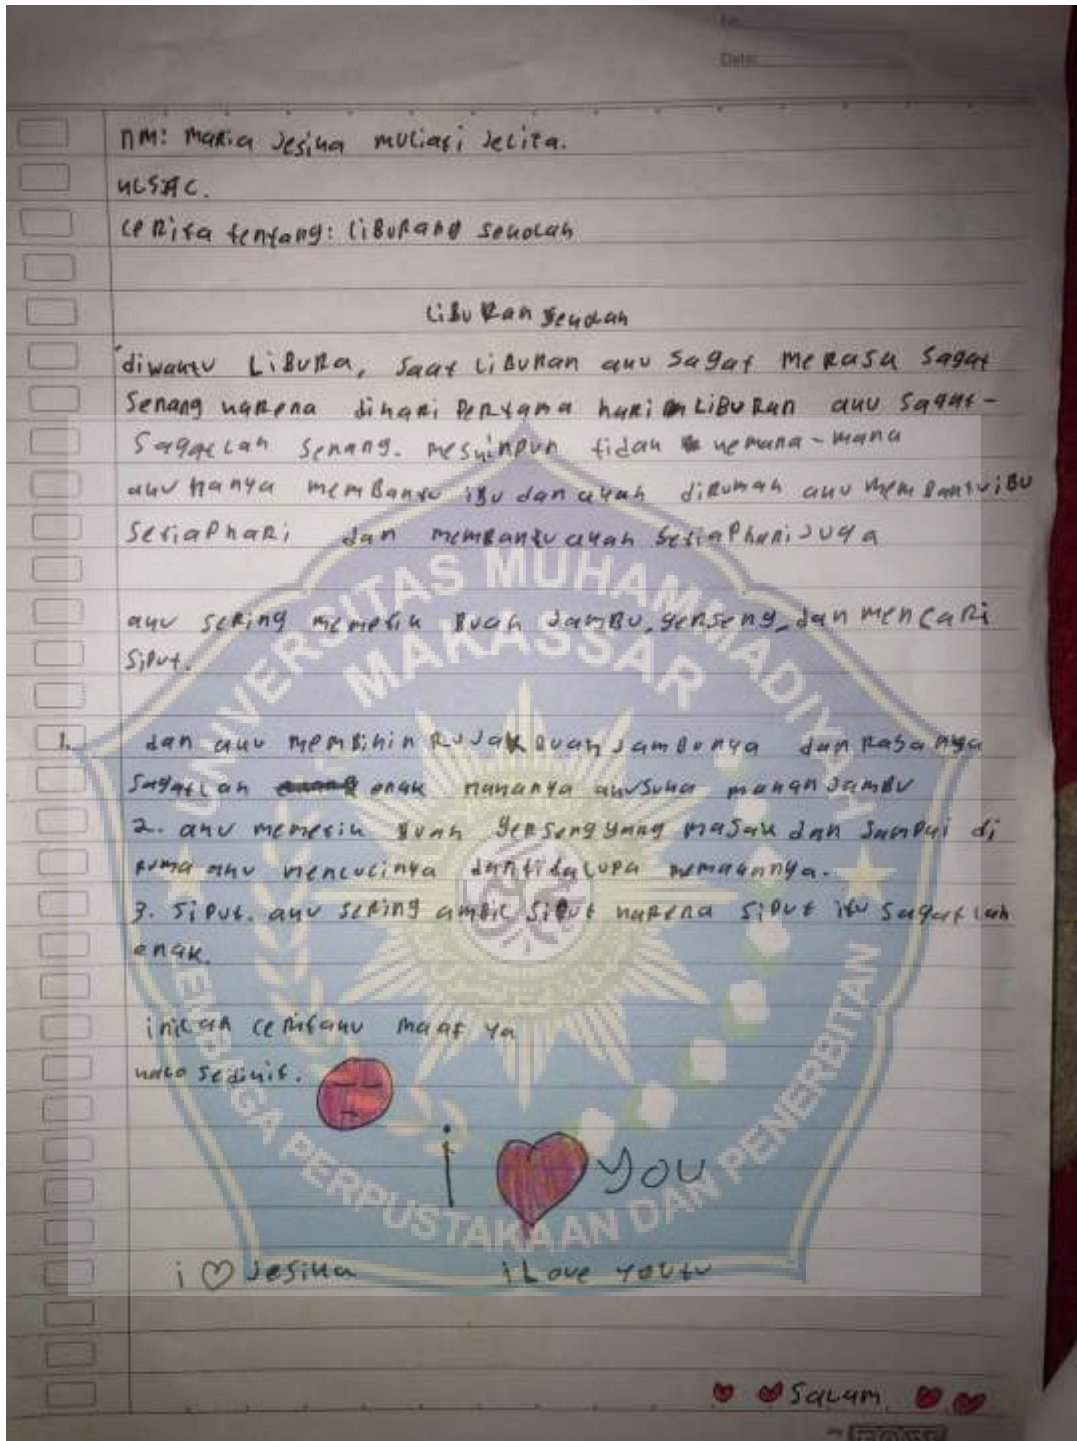 No:
Date:
nm: maria Jesika muliati Jelita.
kls: 
cerita tentang: Liburang sekolah
Liburan sekolah
diwaktu Libura, saat Liburan aku sagat merasa sagat
senang karena dihari pertama hari Liburan aku sagat-
sagatlah senang. meskinpun tidak kemana-mana
aku hanya membantu ibu dan ayah dirumah aku membantu ibu
setiaphari dan membantu ayah setiaphari juga
aku sering memetik buah jambu, gerseng, dan mencari
siput.
1. dan aku membikin rujak buah jambunya dan rasanya
sagatlah enak makanya aku suka makan jambu
2. aku memetik buah gerseng yang masak dan sampai di
ruma aku mencucinya dan tida lupa memakannya.
3. siput. aku sering ambil siput karena siput itu sagatlah
enak.
inilah ceritaku maaf ya
kalo sedikit.
i you
i Jesika i Love youtu
salam
UNIVERSITAS MUHAMMADIYAH
MAKASSAR
LEMBAGA PERPUSTAKAAN DAN PENERBITAN